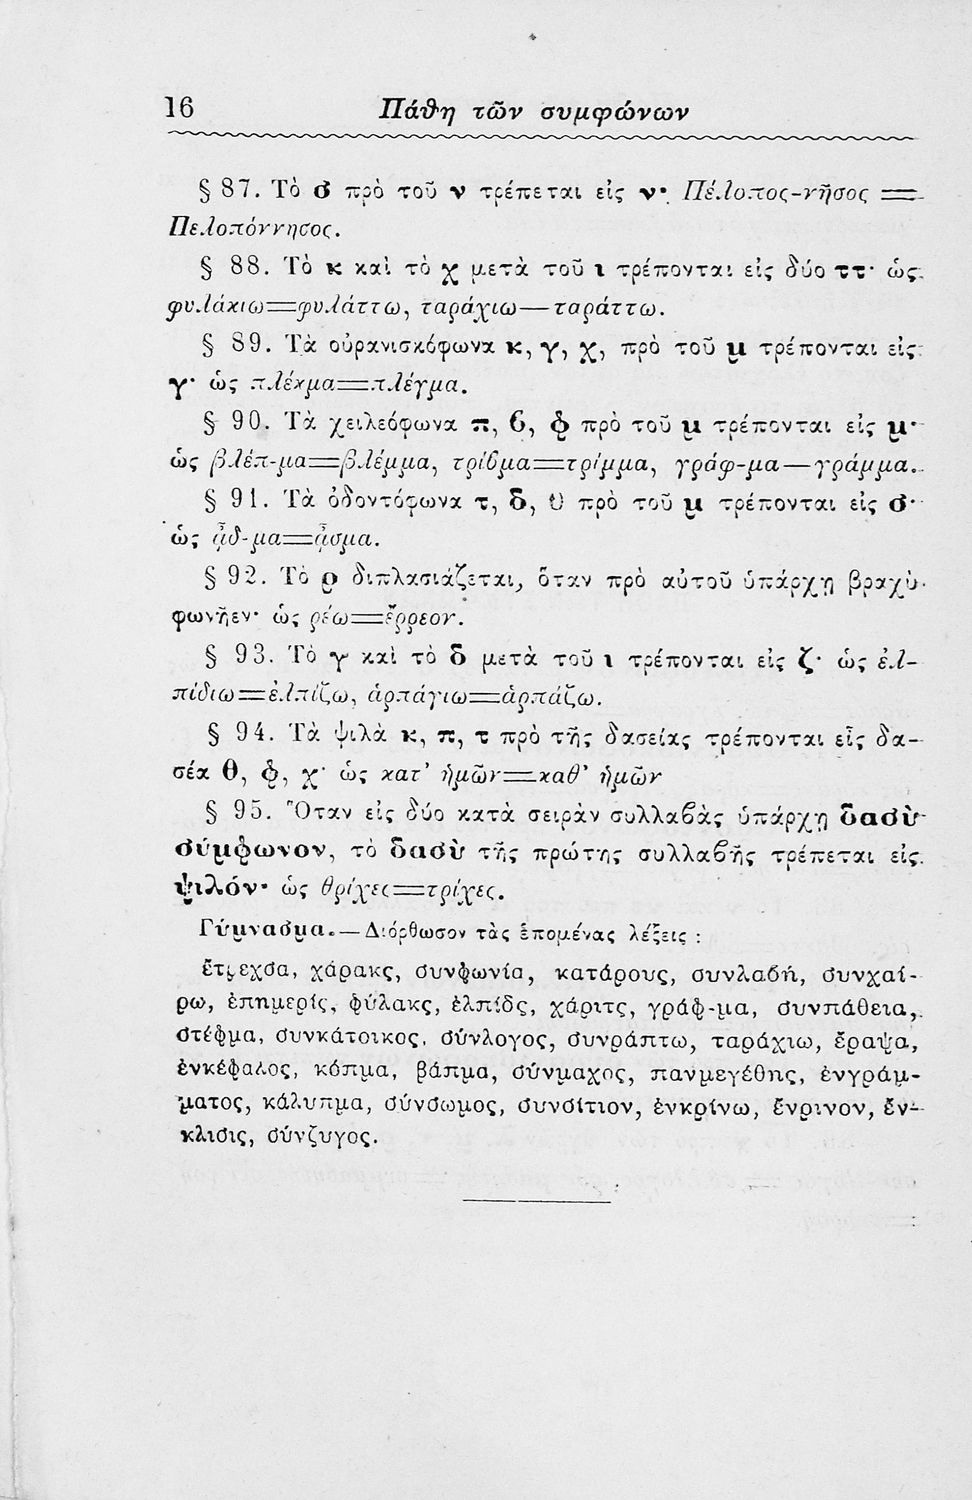 16 Πάθη τῶν συμφώνων
§ 87. Τὸ σ πρὸ τοῦ ν τρέπεται εἰς ν· Πέλοπος-νῆσος =
Πελοπόννησος.
§ 88. Τὸ κ καὶ τὸ χ μετὰ τοῦ ι τρέπονται εἰς δύο ττ· ὡς
φυλάκιω=φυλάττω, ταράχιω—ταράττω.
§ 89. Τὰ οὐρανισκόφωνα κ, γ, χ, πρὸ τοῦ μ τρέπονται εἰς
γ· ὡς πλέκμα=πλέγμα.
§ 90. Τὰ χειλεόφωνα π, β, φ πρὸ τοῦ μ τρέπονται εἰς μ·
ὡς βλέπ-μα=βλέμμα, τρίβμα=τρίμμα, γράφ-μα—γράμμα.
§ 91. Τὰ ὀδοντόφωνα τ, δ, θ πρὸ τοῦ μ τρέπονται εἰς σ·
ὡς ᾆδ-μα=ᾆσμα.
§ 92. Τὸ ρ διπλασιάζεται, ὅταν πρὸ αὐτοῦ ὑπάρχῃ βραχὺ
φωνῆεν· ὡς ρέω=ἔρρεον.
§ 93. Τὸ γ καὶ τὸ δ μετὰ τοῦ ι τρέπονται εἰς ζ· ὡς ἐλ-
πίδιω=ἐλπίζω, ἁρπάγιω=ἁρπάζω.
§ 94. Τὰ ψιλὰ κ, π, τ πρὸ τῆς δασείας τρέπονται εἰς δα-
σέα θ, φ, χ· ὡς κατ' ἡμῶν=καθ' ἡμῶν
§ 95. Ὅταν εἰς δύο κατὰ σειρὰν συλλαβὰς ὑπάρχῃ δασὺ
σύμφωνον, τὸ δασὺ τῆς πρώτης συλλαβῆς τρέπεται εἰς
ψιλόν· ὡς θρίχες=τρίχες.
Γύμνασμα.—Διόρθωσον τὰς ἑπομένας λέξεις :
ἔτρεχσα, χάρακς, συνφωνία, κατάρους, συνλαβή, συνχαί-
ρω, ἐπημερίς, φύλακς, ἐλπίδς, χάριτς, γράφ-μα, συνπάθεια,
στέφμα, συνκάτοικος, σύνλογος, συνράπτω, ταράχιω, ἔραψα,
ἐνκέφαλος, κόπμα, βάπμα, σύνμαχος, πανμεγέθης, ἐνγράμ-
ματος, κάλυπμα, σύνσωμος, συνσίτιον, ἐνκρίνω, ἔνρινον, ἔν-
κλισις, σύνζυγος.